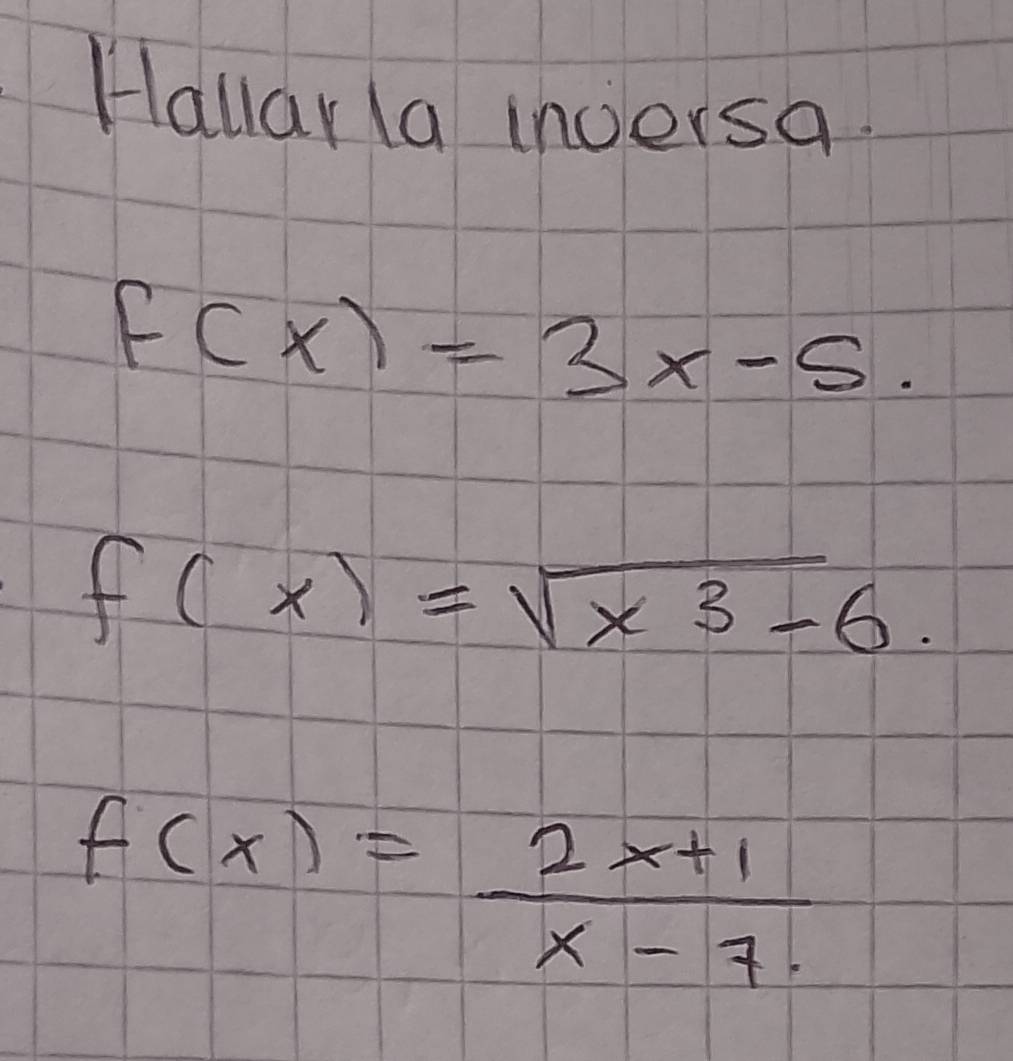 Hallar la inversa.
f(x) = 3x-5.
f(x) = √x3-6.
f(x) = 2x+1
x - 7.